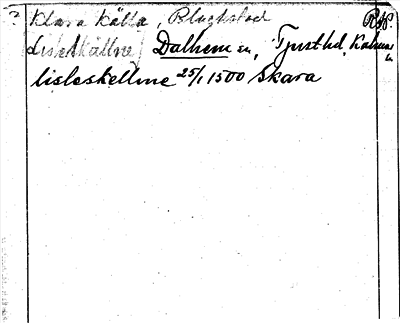 ? Klara Källa, Blackstad
[Lisleskällne] Dalhem sn, Tjust hd, Kalmar l.
lisleskellme 25/1 1500 Skara